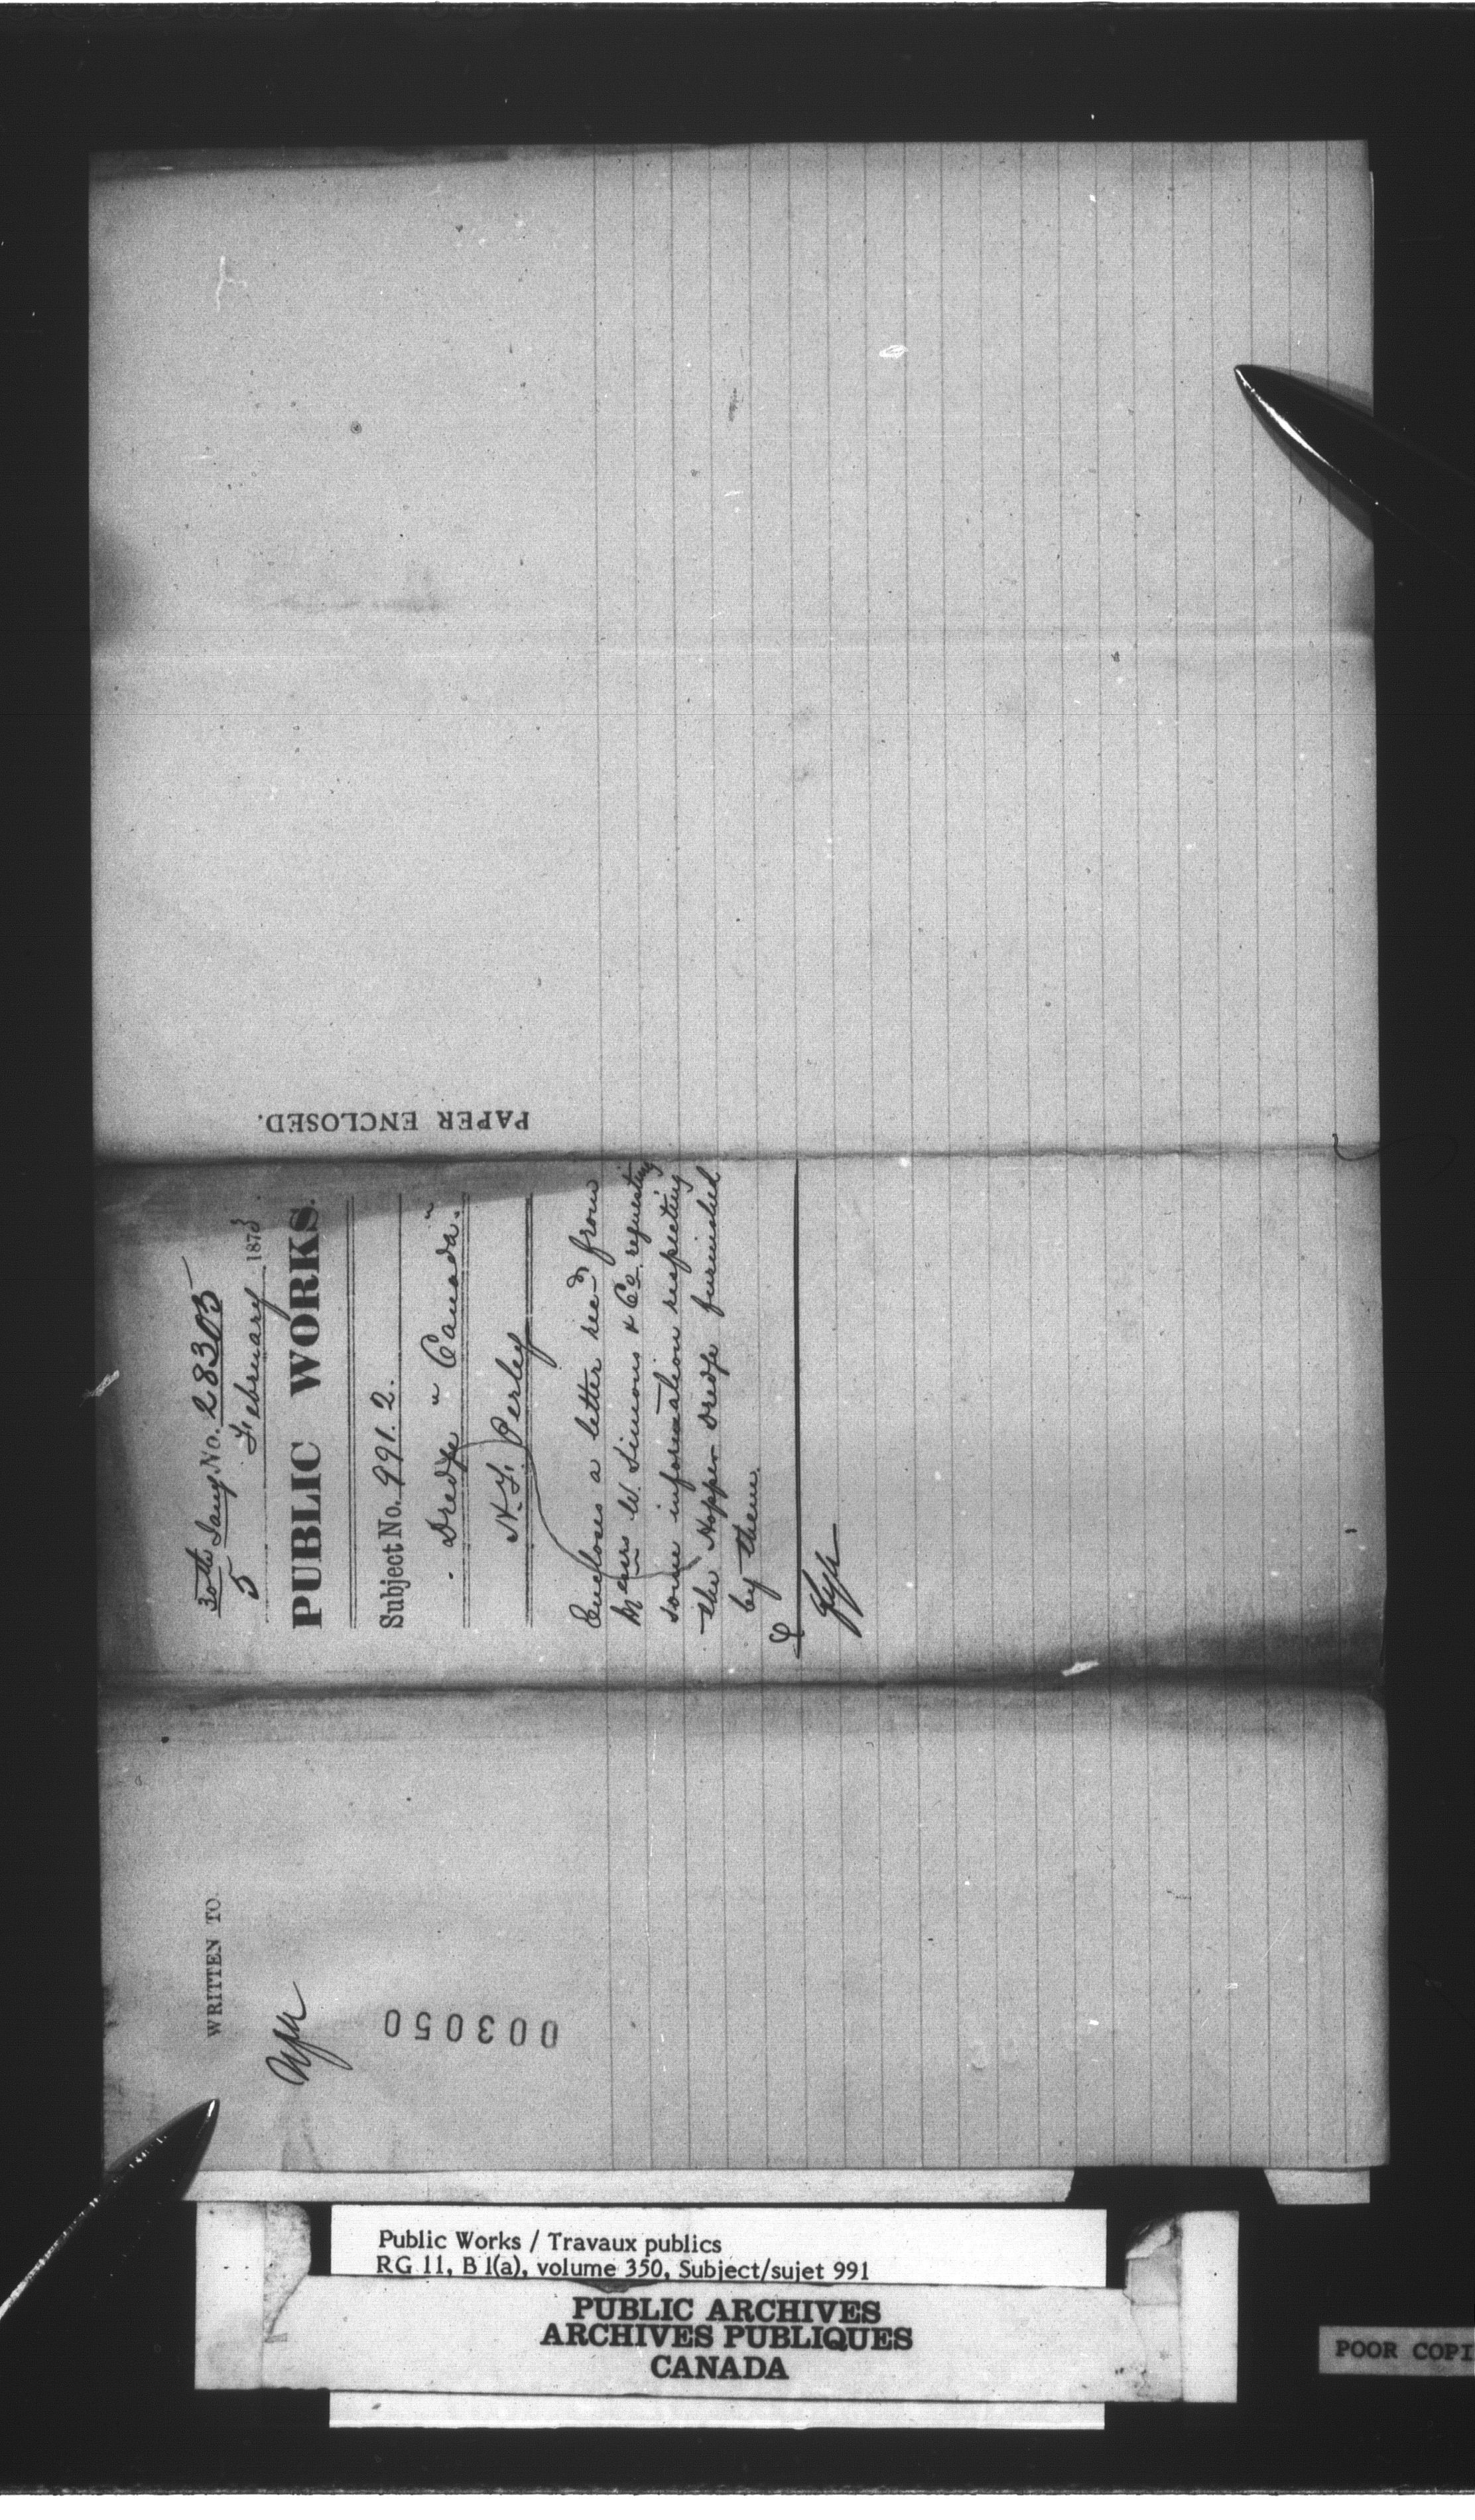 PAPER ENCLOSED.
30th Jany No. 28303
5 February 1873
PUBLIC WORKS.
Subject No. 991.2.
Dredge "Canada."
H. F. Perley
Encloses a letter recd from
Messrs W. Simons & Co. requesting
some information respecting
the Hopper Dredge furnished
by them.
WRITTEN TO
003050
Public Works / Travaux publics
RG 11, B 1(a), volume 350, Subject/sujet 991
PUBLIC ARCHIVES
ARCHIVES PUBLIQUES
CANADA
POOR COPI